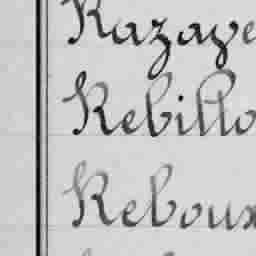 Razaye
Rebillo
Reboux